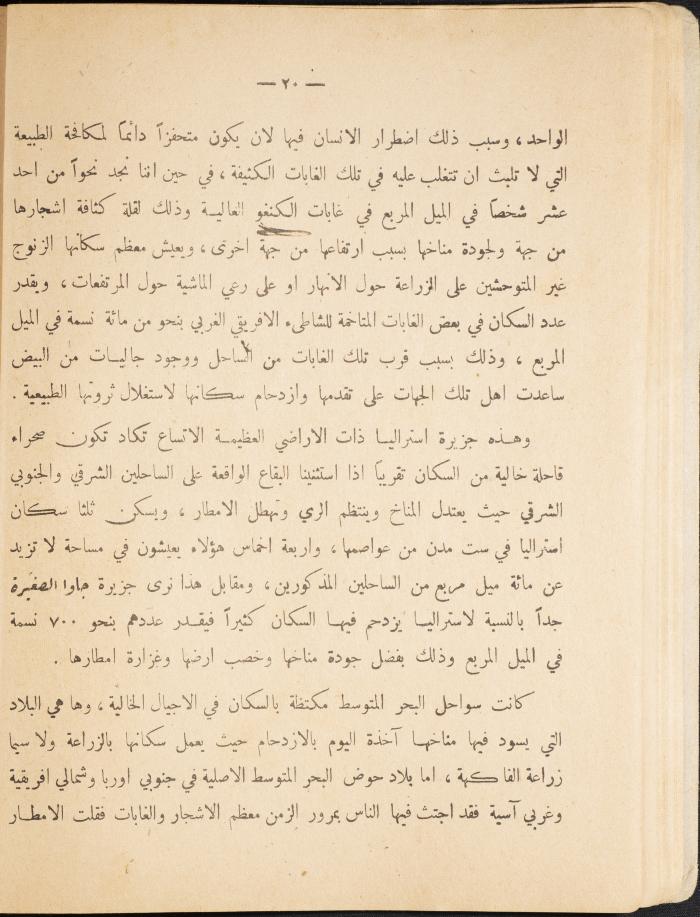 — ٢٠ —
الواحد ، وسبب ذلك اضطرار الانسان فيها لان يكون متحفزاً دائماً لمكافحة الطبيعة
التي لا تلبث ان تتغلب عليه في تلك الغابات الكثيفة ، في حين اننا نجد نحواً من احد
عشر شخصاً في الميل المربع في غابات الكنغو العاليـة وذلك لقلة كثافة اشجارها
من جهة ولجودة مناخها بسبب ارتفاعها من جهة اخرى ، ويعيش معظم سكانها الزنوج
غير المتوحشين على الزراعة حول الانهار او على رعي الماشية حول المرتفعات ، ويقدر
عدد السكان في بعض الغابات المتاخمة للشاطىء الافريقي الغربي بنحو من مائة نسمة في الميل
المربع ، وذلك بسبب قرب تلك الغابات من الساحل ووجود جاليـات من البيض
ساعدت اهل تلك الجهات على تقدمها وازدحام سكانها لاستغلال ثروتها الطبيعية .
وهـذه جزيرة استراليـا ذات الاراضي العظيمـة الاتساع تكاد تكون صحراء
قاحلة خالية من السكان تقريباً اذا استثنينا البقاع الواقعة على الساحلين الشرقي والجنوبي
الشرقي حيث يعتدل المناخ وينتظم الري وتهطل الامطار ، ويسكن ثلثا سكان
استراليا في ست مدن من عواصمها ، واربعة اخماس هؤلاء يعيشون في مساحة لا تزيد
عن مائة ميل مربع من الساحلين المذكورين ، ومقابل هذا نرى جزيرة جاوا الصغيرة
جداً بالنسبة لاستراليـا يزدحم فيهـا السكان كثيراً فيقـدر عددهم بنحو ٧٠٠ نسمة
في الميل المربع وذلك بفضل جودة مناخها وخصب ارضها وغزارة امطارها .
كانت سواحل البحر المتوسط مكتظة بالسكان في الاجيال الخالية ، وها هي البلاد
التي يسود فيها مناخهـا آخذة اليوم بالازدحام حيث يعمل سكانها بالزراعة ولا سيما
زراعة الفاكهة ، اما بلاد حوض البحر المتوسط الاصلية في جنوبي اوربا وشمالي افريقية
وغربي آسية فقد اجتث فيها الناس بمرور الزمن معظم الاشجار والغابات فقلت الامطـار